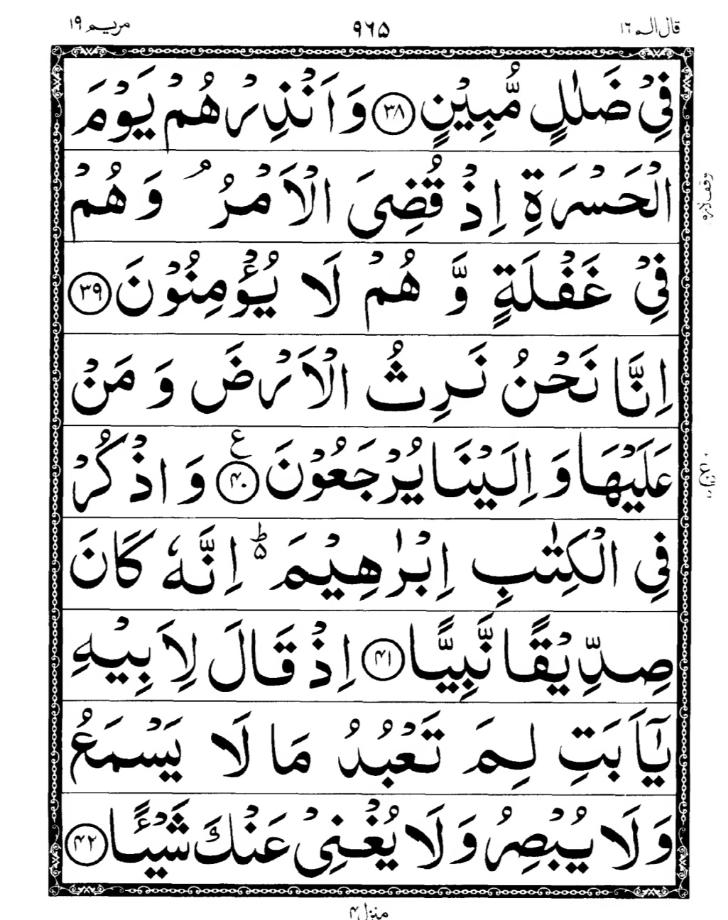 قال الم ١٦ ٩٦٥ مريم ١٩
فِيْ ضَلٰلٍ مُّبِيْنٍ ﴿٣٨﴾ وَاَنْذِرْهُمْ يَوْمَ
الْحَسْرَةِ اِذْ قُضِيَ الْاَمْرُ ۘ وَهُمْ
فِيْ غَفْلَةٍ وَّ هُمْ لَا يُؤْمِنُوْنَ ﴿٣٩﴾
اِنَّا نَحْنُ نَرِثُ الْاَرْضَ وَ مَنْ
عَلَيْهَا وَ اِلَيْنَا يُرْجَعُوْنَ ﴿٤٠﴾ ع وَ اذْكُرْ
فِي الْكِتٰبِ اِبْرٰهِيْمَ ؕ اِنَّهٗ كَانَ
صِدِّيْقًا نَّبِيًّا ﴿٤١﴾ اِذْ قَالَ لِاَبِيْهِ
يٰٓاَبَتِ لِمَ تَعْبُدُ مَا لَا يَسْمَعُ
وَلَا يُبْصِرُ وَلَا يُغْنِيْ عَنْكَ شَيْـًٔا ﴿٤٢﴾
منزل ٤